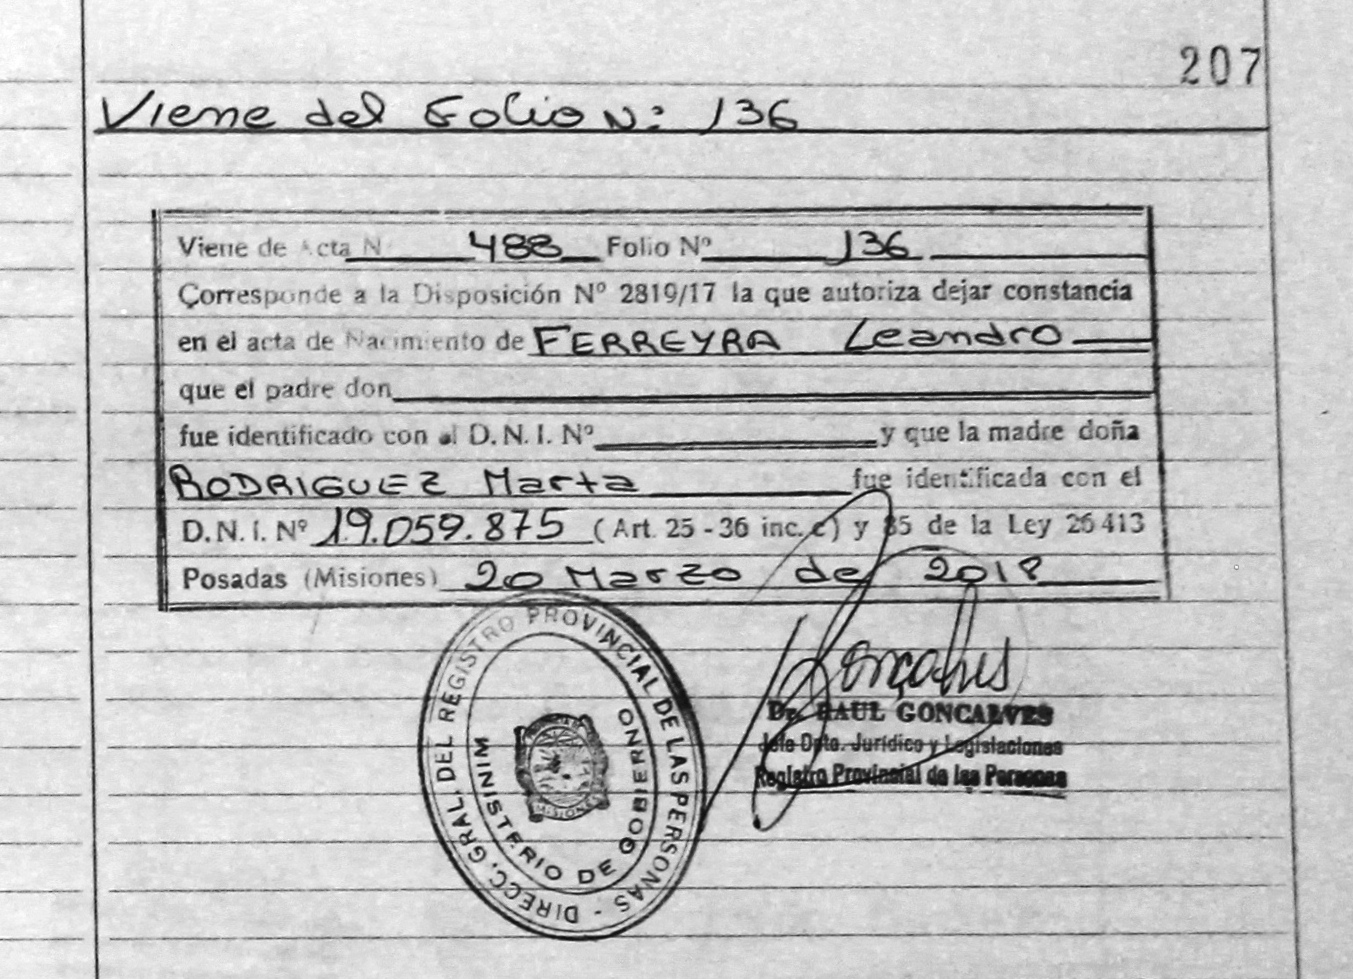 207
Viene del Folio N: 136
Viene de Acta N 488 Folio Nº 136
Corresponde a la Disposición Nº 2819/17 la que autoriza dejar constancia
en el acta de Nacimiento de FERREYRA Leandro
que el padre don
fue identificado con el D. N. I. Nº y que la madre doña
RODRIGUEZ Marta fue identificada con el
D. N. I. Nº 19.059.875 (Art. 25 - 36 inc. c) y 85 de la Ley 26413
Posadas (Misiones) 20 Marzo de 2018
DIRECC. GRAL. DEL REGISTRO PROVINCIAL DE LAS PERSONAS -
MINISTERIO DE GOBIERNO
MISIONES
Goncalves
Dr. RAUL GONCALVES
Jefe Dpto. Jurídico y Legislaciones
Registro Provincial de las Personas